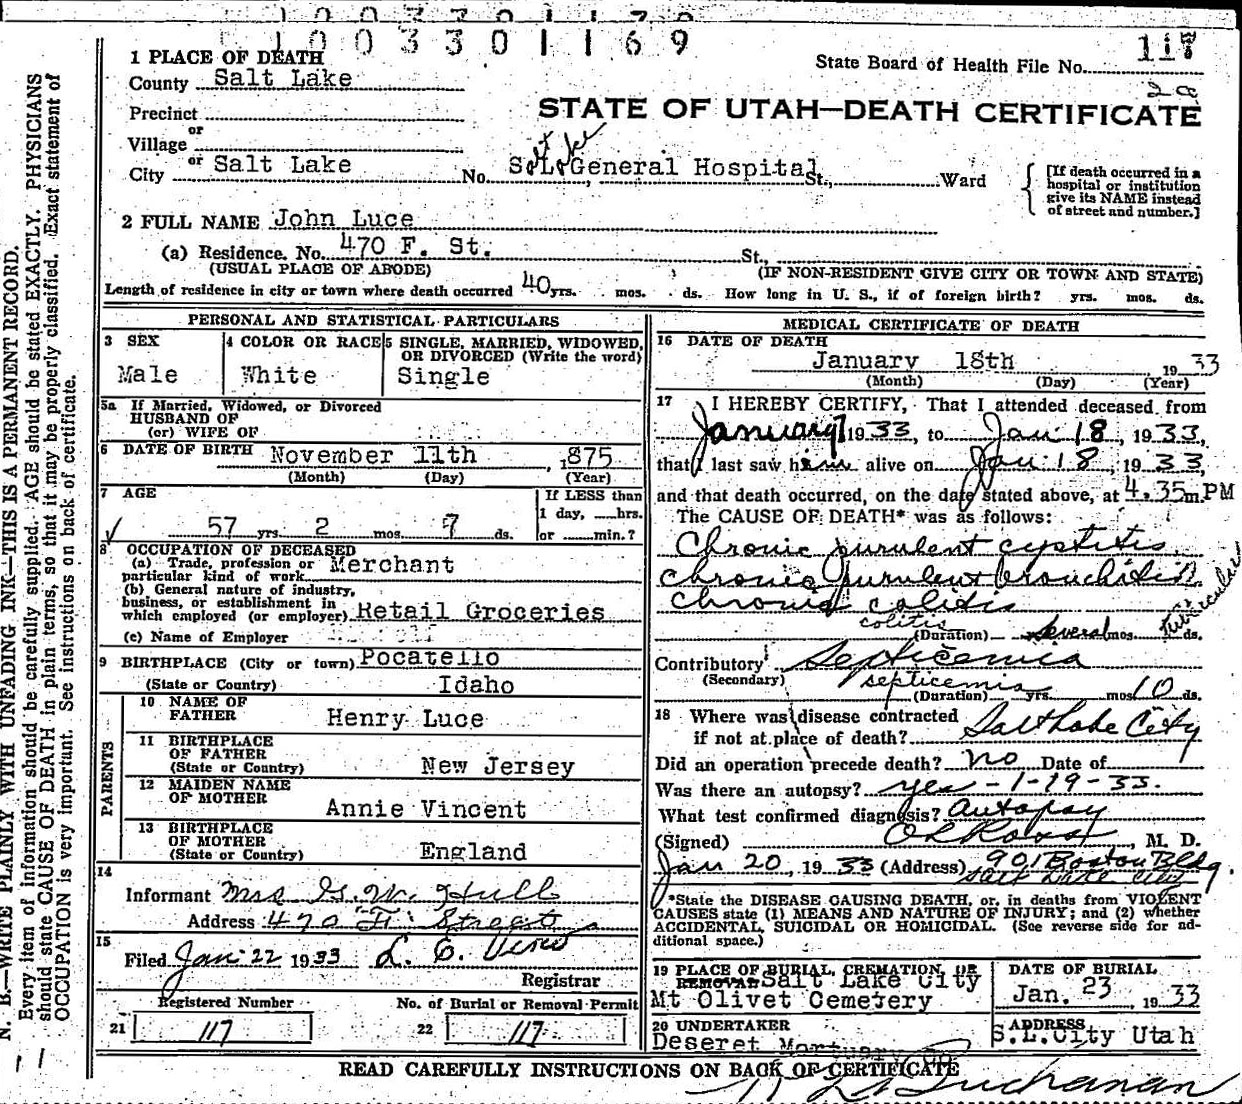 1003301169
117
State Board of Health File No.
1 PLACE OF DEATH
County Salt Lake
Precinct
or
Village
or
City Salt Lake No. General Hospital St., Ward
STATE OF UTAH—DEATH CERTIFICATE
[If death occurred in a
hospital or institution
give its NAME instead
of street and number.]
2 FULL NAME John Luce
(a) Residence. No. 470 F. St. St.,
(USUAL PLACE OF ABODE) (IF NON-RESIDENT GIVE CITY OR TOWN AND STATE)
Length of residence in city or town where death occurred 40 yrs. mos. ds. How long in U. S., if of foreign birth? yrs. mos. ds.
PERSONAL AND STATISTICAL PARTICULARS
3 SEX
Male
4 COLOR OR RACE
White
5 SINGLE, MARRIED, WIDOWED,
OR DIVORCED (Write the word)
Single
5a If Married, Widowed, or Divorced
HUSBAND OF
(or) WIFE OF
6 DATE OF BIRTH November 11th, 1875
(Month) (Day) (Year)
7 AGE
57 yrs. 2 mos. 7 ds.
If LESS than
1 day, ___hrs.
or ___min.?
8 OCCUPATION OF DECEASED
(a) Trade, profession or
particular kind of work Merchant
(b) General nature of industry,
business, or establishment in
which employed (or employer) Retail Groceries
(c) Name of Employer
9 BIRTHPLACE (City or town) Pocatello
(State or Country) Idaho
PARENTS
10 NAME OF
FATHER Henry Luce
11 BIRTHPLACE
OF FATHER
(State or Country) New Jersey
12 MAIDEN NAME
OF MOTHER Annie Vincent
13 BIRTHPLACE
OF MOTHER
(State or Country) England
14
Informant Mrs G. W. Hull
Address 470 F. Street
15
Filed Jan 22 1933 L. E.
Registrar
Registered Number
21 117
No. of Burial or Removal Permit
22 117
MEDICAL CERTIFICATE OF DEATH
16 DATE OF DEATH
January 18th 1933
(Month) (Day) (Year)
17 I HEREBY CERTIFY, That I attended deceased from
January 7 1933, to Jan 18, 1933,
that I last saw him alive on Jan 18, 1933,
and that death occurred, on the date stated above, at 4.35 m. PM
The CAUSE OF DEATH* was as follows:
Chronic purulent cystitis
chronic purulent bronchitis
chronic colitis
colitis
(Duration) several mos. ds.
Contributory Septicemia
(Secondary) septicemia
(Duration) yrs. mos. 10 ds.
18 Where was disease contracted
if not at place of death? Salt Lake City
Did an operation precede death? no Date of
Was there an autopsy? yes - 1-19-33.
What test confirmed diagnosis? Autopsy
(Signed) , M. D.
Jan 20, 1933 (Address) 901 Boston Bldg.
Salt Lake City
*State the DISEASE CAUSING DEATH, or, in deaths from VIOLENT
CAUSES state (1) MEANS AND NATURE OF INJURY; and (2) whether
ACCIDENTAL, SUICIDAL OR HOMICIDAL. (See reverse side for ad-
ditional space.)
19 PLACE OF BURIAL, CREMATION, OR
REMOVAL Salt Lake City
Mt Olivet Cemetery
DATE OF BURIAL
Jan. 23, 1933
20 UNDERTAKER
Deseret Mortuary Co
ADDRESS
S.L.City Utah
READ CAREFULLY INSTRUCTIONS ON BACK OF CERTIFICATE
Buchanan
N. B.—WRITE PLAINLY WITH UNFADING INK—THIS IS A PERMANENT RECORD.
Every item of information should be carefully supplied. AGE should be stated EXACTLY. PHYSICIANS
should state CAUSE OF DEATH in plain terms, so that it may be properly classified. Exact statement of
OCCUPATION is very important. See instructions on back of certificate.